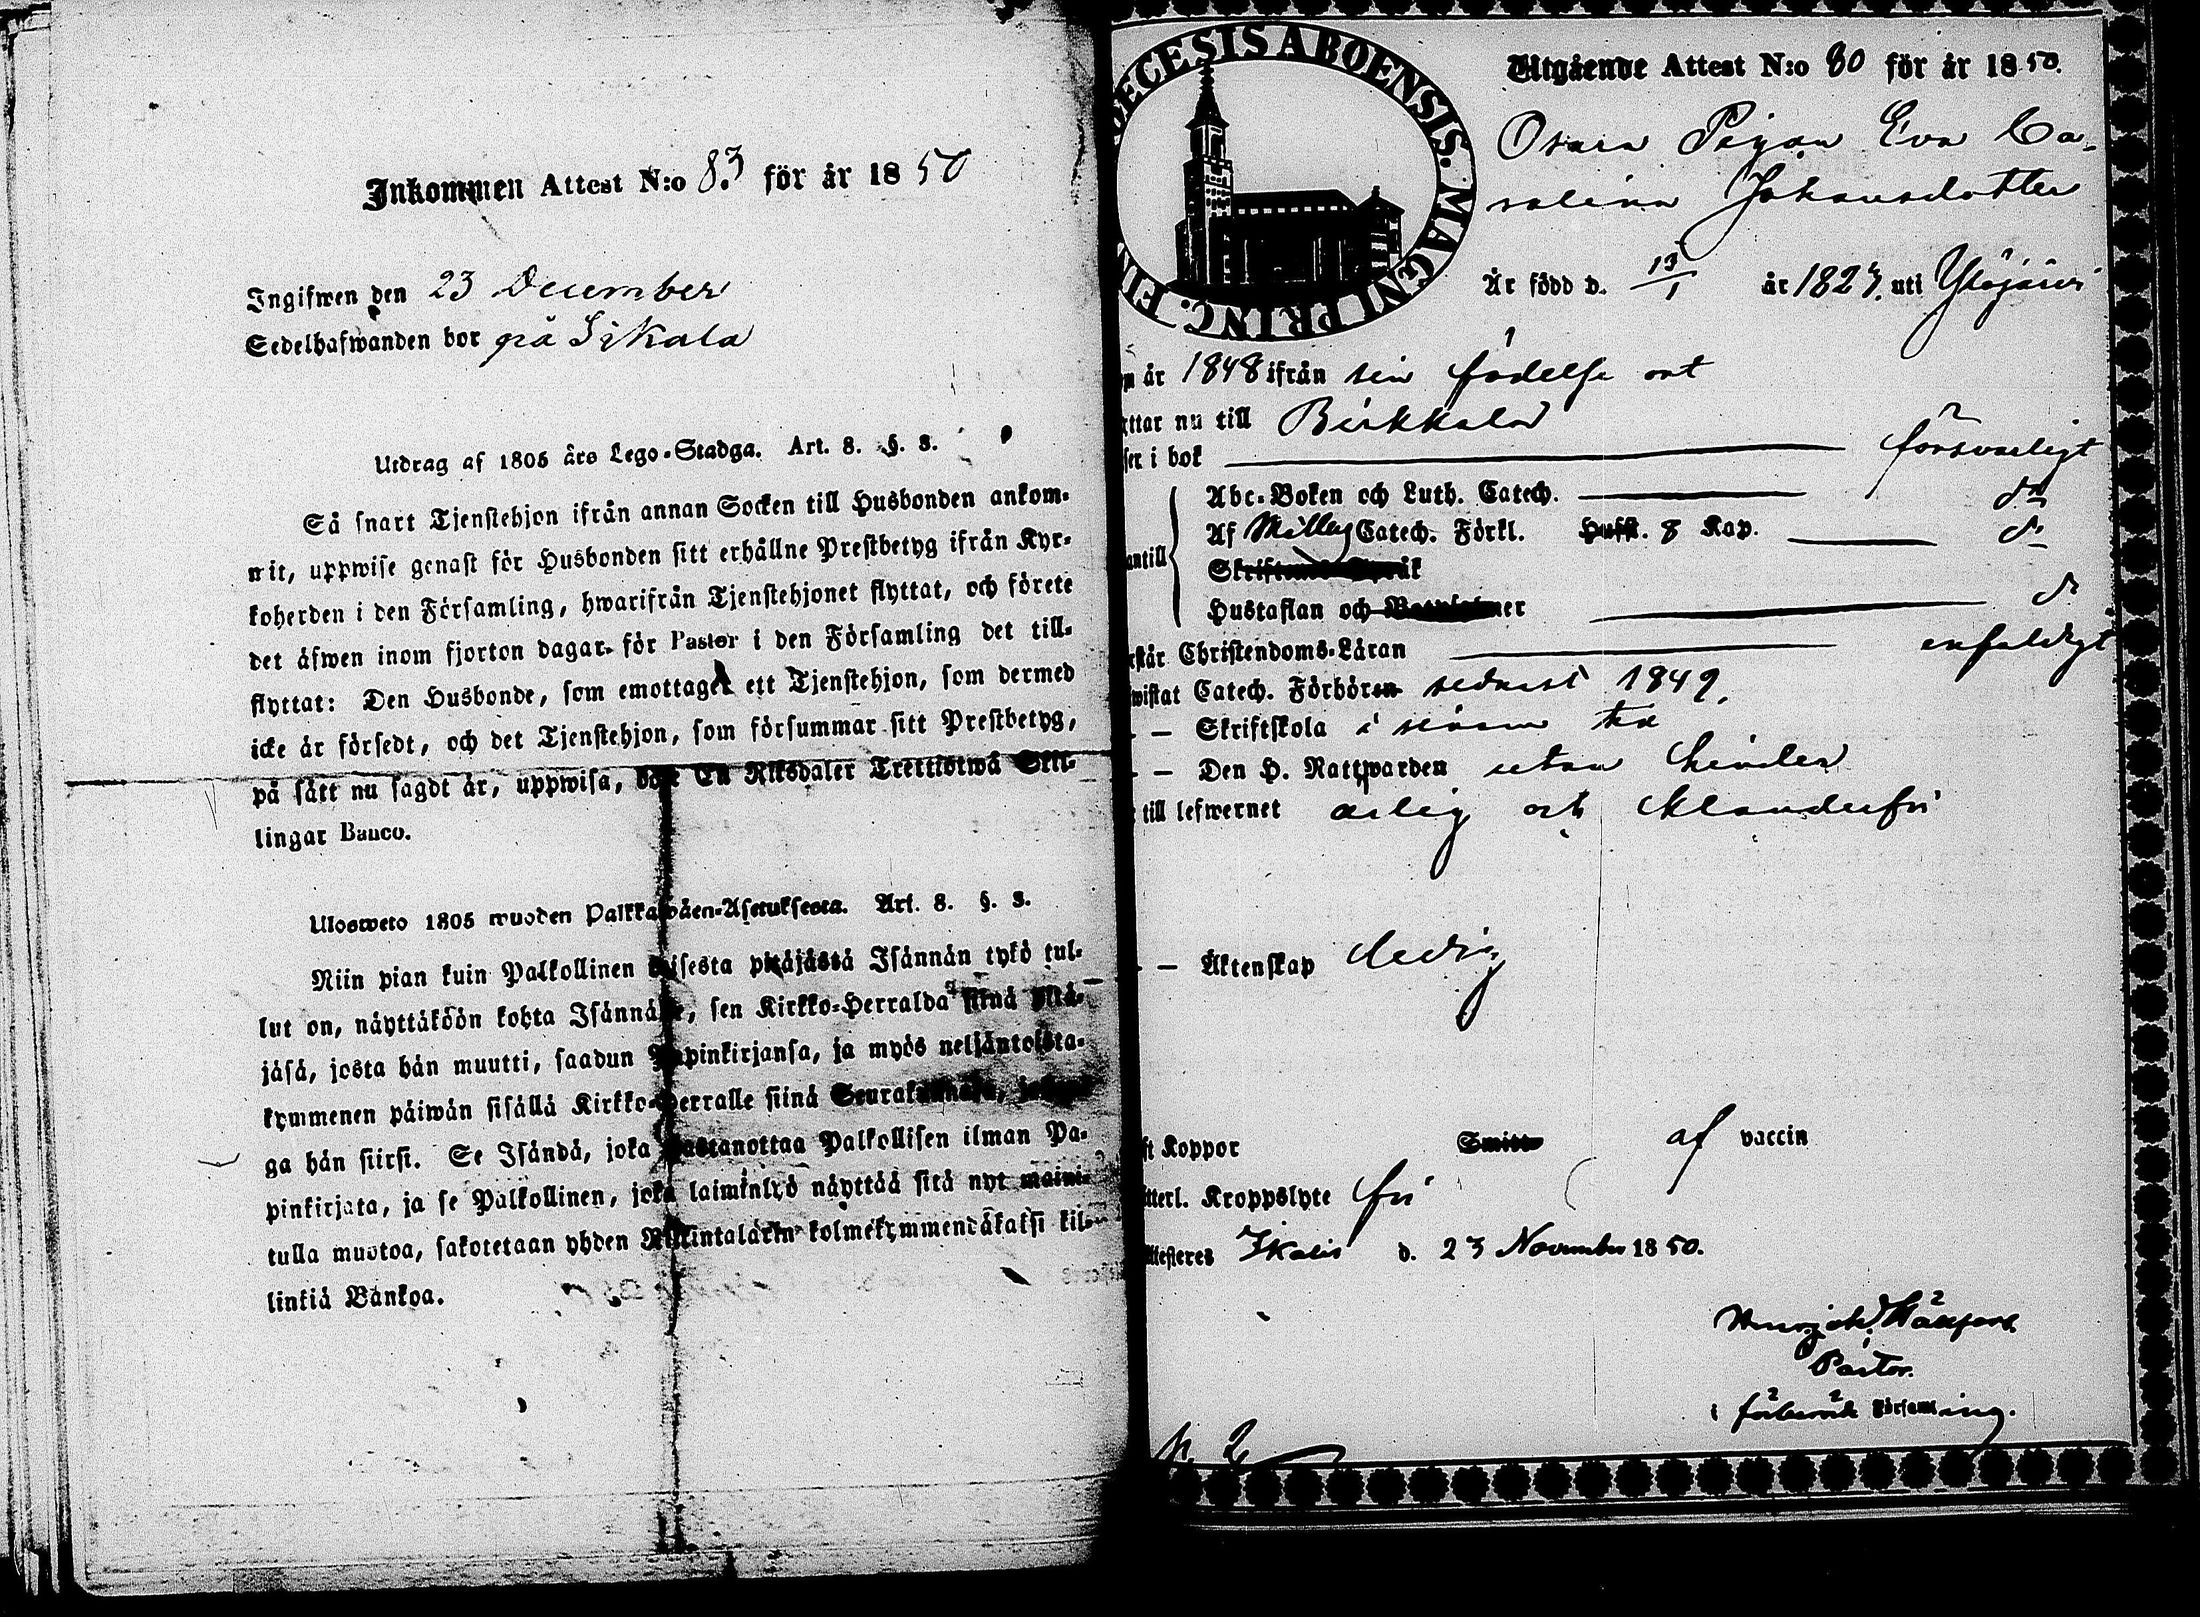 Inkommen Attest N:o 83 för år 1850
Ingifwen den 23 December
Sedelhafwanden bor på Sikala
Utdrag af 1805 års Lego-Stadga. Art. 8. §. 8.
Så snart Tjenstehjon ifrån annan Socken till Husbonden ankom-
mit, uppwise genast för Husbonden sitt erhållne Prestbetyg ifrån Kyr-
koherden i den Församling, hwarifrån Tjenstehjonet flyttat, och förete
det äfwen inom fjorton dagar för Pastor i den Församling det till-
flyttat: Den Husbonde, som emottager ett Tjenstehjon, som dermed
icke är försedt, och det Tjenstehjon, som försummar sitt Prestbetyg,
på sätt nu sagdt är, uppwisa, böte En Riksdaler Trettiotwå Skil-
lingar Banco.
Ulosweto 1805 wuoden Palkkawäen-Asetuksesta. Art. 8. §. 8.
Niin pian kuin Palkollinen toisesta pitäjästä Isännän tykö tul-
lut on, näyttäköön kohta Isännälle, sen Kirkko-Herralda siinä Pitä-
jäsä, josta hän muutti, saadun Papinkirjansa, ja myös neljäntoista-
kymmenen päiwän sisällä Kirkko-Herralle siinä Seurakunnasa, johon-
ga hän siirsi. Se Isändä, joka wastanottaa Palkollisen ilman Pa-
pinkirjata, ja se Palkollinen, joka laiminlyö näyttää sitä nyt maini-
tulla muotoa, sakotetaan yhden Riikintalarin kolmekymmendäkaksi kil-
linkiä Bankoa.
DIOECESIS ABOENSIS. MAGNI PRINC. FIN
Utgående Attest N:o 80 för år 1850.
Pigan Eva Ca-
rolina Johansdotter
Är född d. 13/1 år 1827. uti Ylöjärvi
en år 1848 ifrån sin födelse ort
yttar nu till Birkkala
ser i bok försvarligt
Abc-Boken och Luth. Catech. do
Af Catech. Förkl. Hufst. 8 Kap. do
antill Skriftenes Språk
Hustaflan och do
rstår Christendoms-Läran enfaldigt
wistat Catech. Förhören sednast 1849.
— — Skriftskola i sinom tid
— — Den H. Nattwarden utan hinder
till lefwernet ärlig och klanderfri
— — Äktenskap ledig
ft Koppor Smitto af vaccin
tterl. Kroppslyte fri
ttesteres Ikalis d. 23 November 1850.
Pastor.
i förberörde Församling.